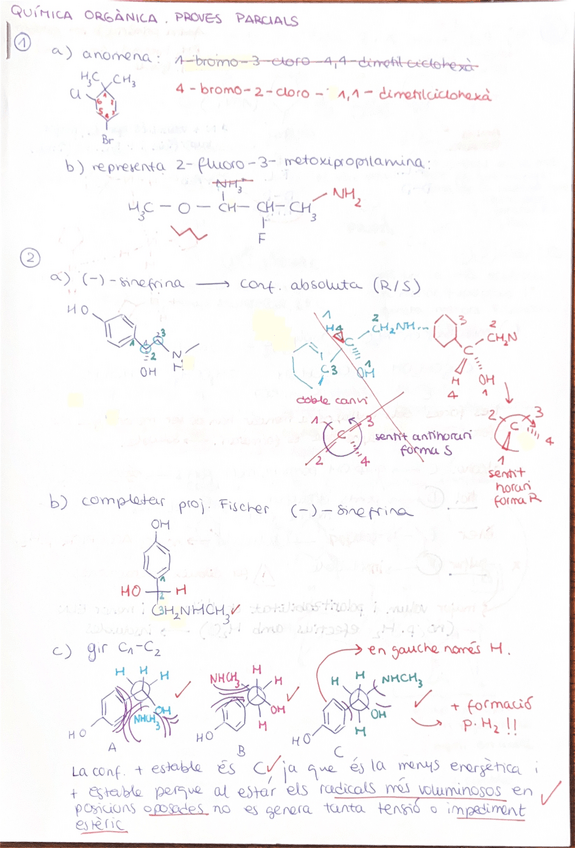 QUÍMICA ORGÀNICA. PROVES PARCIALS
1
a) anomena: 1-bromo-3-cloro-4,4-dimetilciclohexà
4-bromo-2-cloro-1,1-dimetilciclohexà
H3C CH3
Cl
1
6
5
4
Br
b) representa 2-fluoro-3-metoxipropilamina:
NH3
H3C — O — CH — CH — CH3 — NH2
F
2
a) (-)-sinefrina → conf. absoluta (R/S)
HO
1 2 3
OH
N
H
1
H4
C
2
CH2NH...
C3
1
OH
3
2
CH2N
C
H
4
OH
1
doble canvi
1 3
C
2 4
sentit antihorari
forma S
2 3
C
4
1
sentit
horari
forma R
b) completar proj. Fischer (-)-sinefrina
OH
1
HO H
2
CH2NHCH3
c) gir C1-C2
→ en gauche només H.
H H H
OH
NHCH3
HO
A
NHCH3 H H
OH
H
HO
B
H H NHCH3
OH
H
HO
C
+ formació
p. H2 !!
La conf. + estable és C ja que és la menys energètica i
+ estable perque al estar els radicals més voluminosos en
posicions oposades no es genera tanta tensió o impediment
estèric